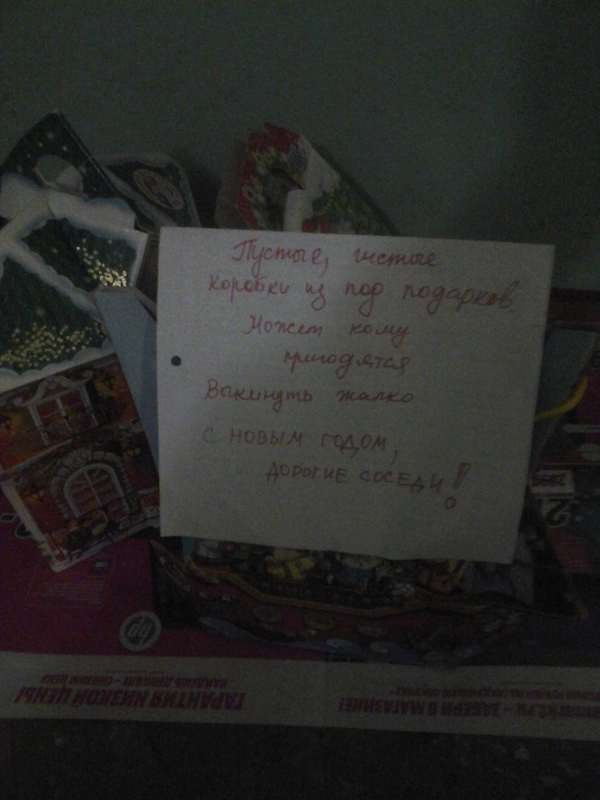 Пустые, чистые
коробки из под подарков.
Может кому
пригодятся
Выкинуть жалко
С НОВЫМ ГОДОМ,
ДОРОГИЕ СОСЕДИ!
hp
ГАРАНТИЯ НИЗКОЙ ЦЕНЫ
НАЙДЕШЬ ДЕШЕВЛЕ – СНИЗИМ ЦЕНУ
– ЗАБЕРИ В МАГАЗИНЕ!